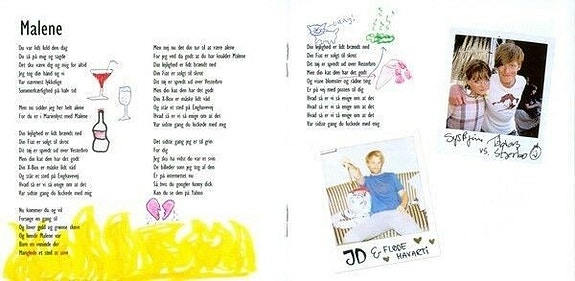 Malene
Du var lidt fuld den dag
Du så på mig og sagde
Det ska være dig og mig for altid
Jeg tog din hånd og vi
Var nærmest lykkelige
Sommerkærlighed på halv tid
Men nu sidder jeg her helt alene
For du er i Marienlyst med Malene
Din lejlighed er lidt brændt ned
Din Fiat er solgt til skrot
Din tøj er spredt ud over Vesterbro
Men din kat den har det godt
Din X-Box er måske lidt våd
Og står et sted på Enghavevej
Hvad så er vi så enige om at det
Var sidste gang du fuckede med mig
Nu kommer du og vil
Forsøge en gang til
Og lover guld og grønne skove
Og hende Malene var
Bare en veninde der
Manglede et sted at sove
Men nej nu det din tur til at være alene
For jeg ved da godt at du har knaldet Malene
Din lejlighed er lidt brændt ned
Din Fiat er solgt til skrot
Din tøj er spredt ud over Vesterbro
Men din kat den har det godt
Din X-Box er måske lidt våd
Og står et sted på Enghavevej
Hvad så er vi så enige om at det
Var sidste gang du fuckede med mig
Det sidste gang jeg er til grin
For dig
Jeg ska ha vidst du var et svin
De billeder som jeg tog af den
Er på internettet nu
Så hvis du googler funny dick
Kan du se den på Yahoo
Din lejlighed er lidt brændt ned
Din Fiat er solgt til skrot
Din tøj er spredt ud over Vesterbro
Men din kat den har det godt
Og visne blomster og rådne ting
Er på vej med posten til dig
Hvad så er vi så enige om at det
Hvad så er vi så enige om at det
Hvad så er vi så enige om at det
Var sidste gang du fuckede med mig
vs.
JD & FLØDE
HAVARTI